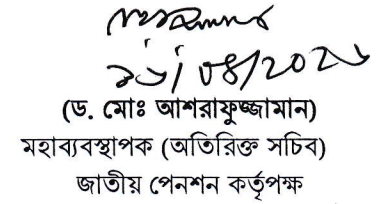 (ড. মোঃ আশরাফুজ্জামান)
মহাব্যবস্থাপক (অতিরিক্ত সচিব)
জাতীয় পেনশন কর্তৃপক্ষ